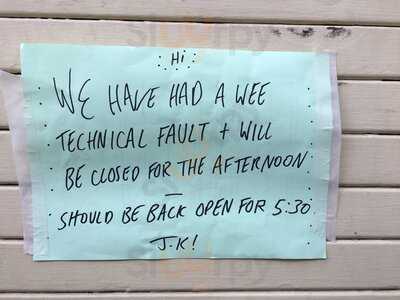 : Hi :
WE HAVE HAD A WEE
TECHNICAL FAULT + WILL
BE CLOSED FOR THE AFTERNOON
—
SHOULD BE BACK OPEN FOR 5:30
J.K!